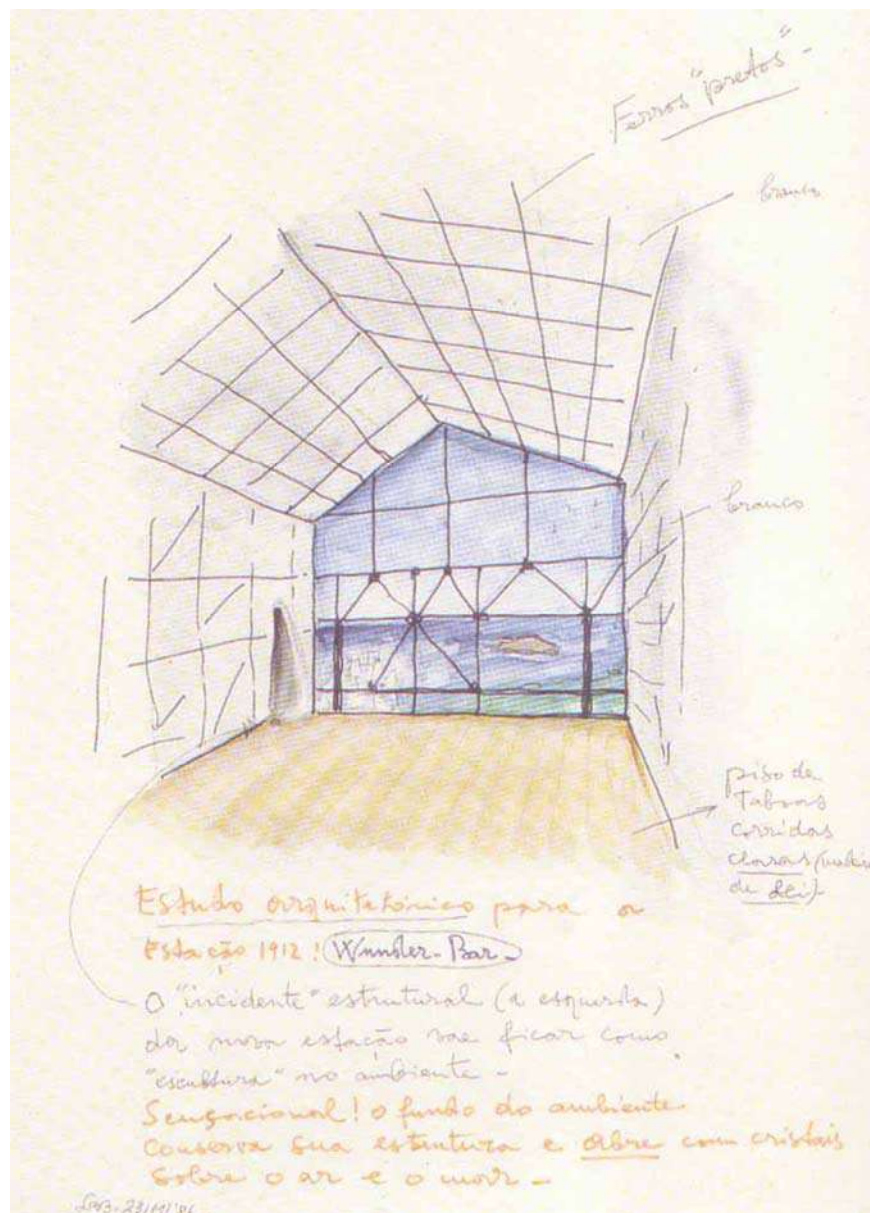 Ferros "pretos" -
branco
branco
piso de
tabuas
corridas
claras (
de lei)
Estudo arquitetônico para a
Estação 1912! Wunder-Bar -
O "incidente" estrutural (a esquerda)
da nova estação vae ficar como
"escultura" no ambiente -
Sensacional! O fundo do ambiente
conserva sua estrutura e abre com cristais
sobre o ar e o mar -